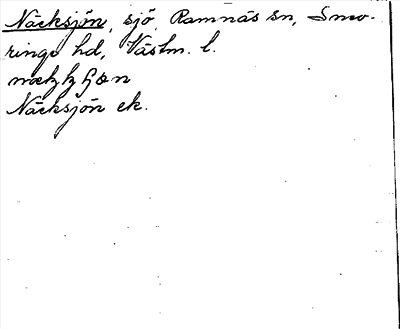 Näcksjön, sjö, Ramnäs sn, Snev-
ringe hd, Västm. l.
Näcksjön ek.